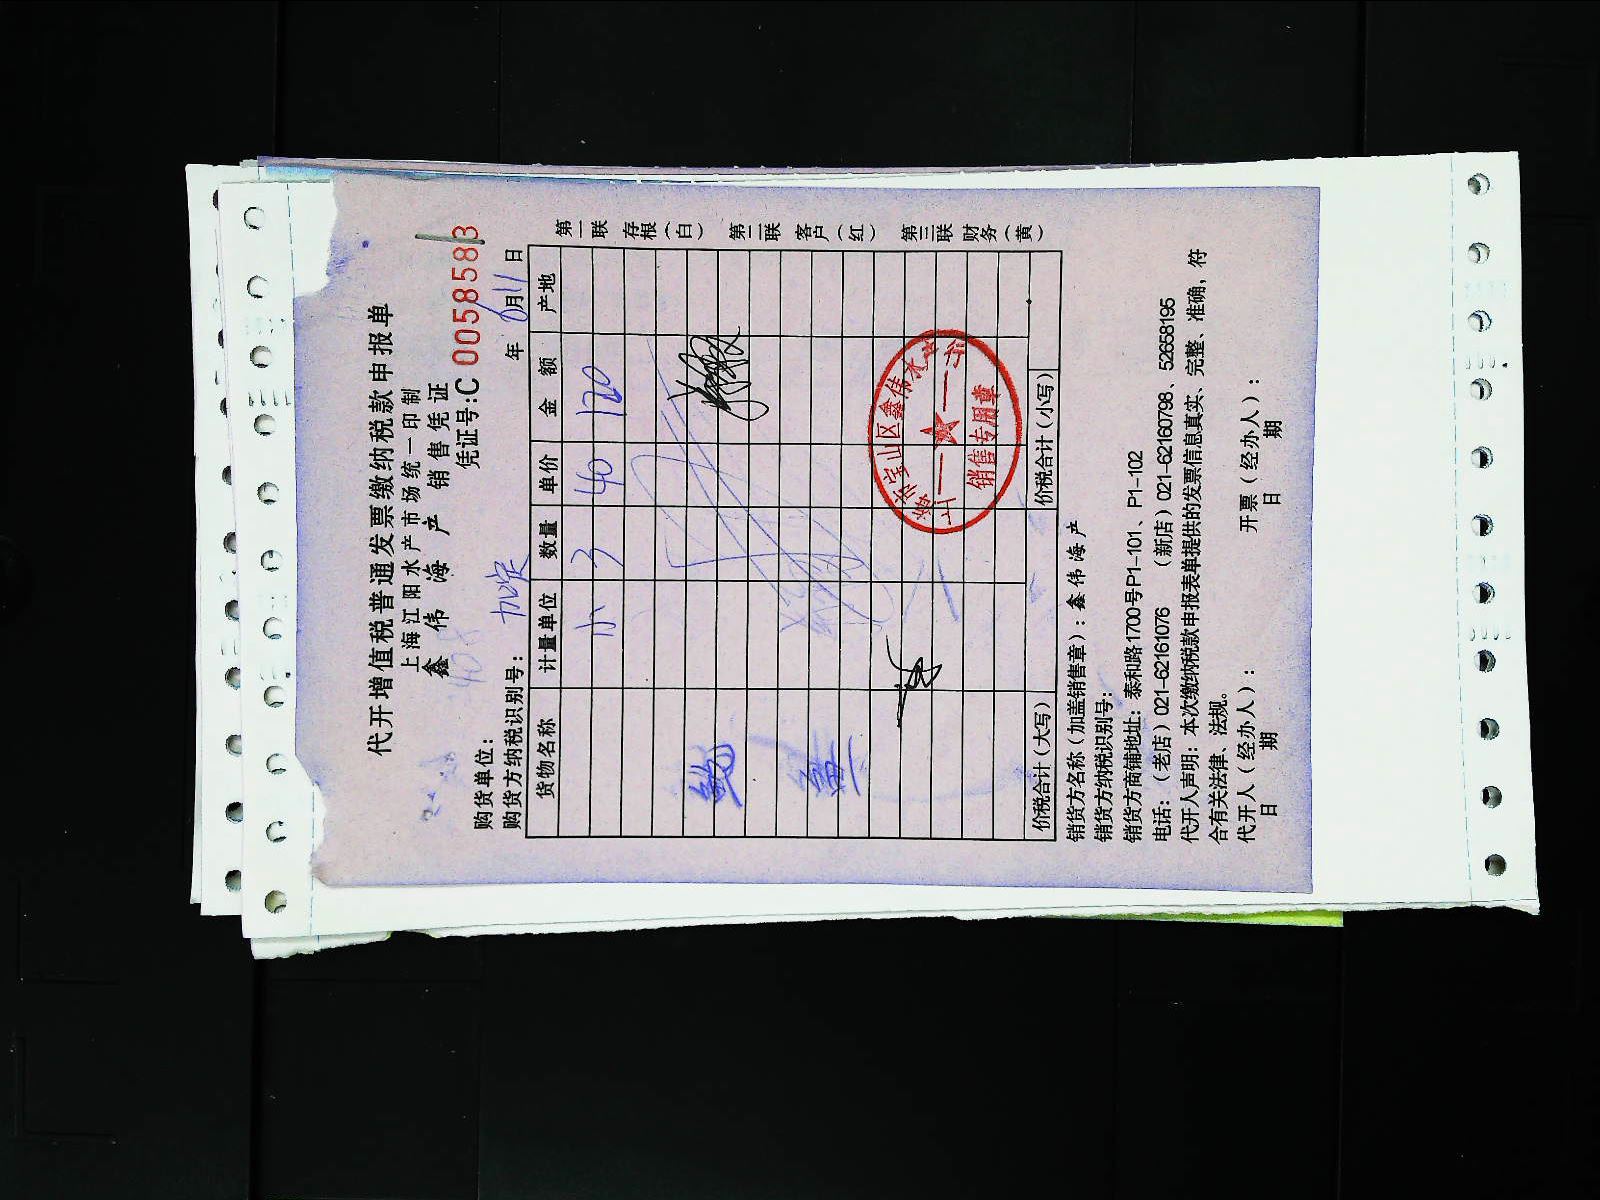 代开增值税普通发票缴纳税款申报单
上海江阳水产市场统一印制
鑫伟海产 销售凭证
凭证号:C 0058583
购货单位:
购货方纳税识别号: 年 月11日
货物名称 计量单位 数量 单价 金额 产地
小 3 40 120
价税合计(大写) 价税合计(小写)
第一联 存根(白) 第二联 客户(红) 第三联 财务(黄)
销售专用章
销货方名称(加盖销售章):鑫伟海产
销货方纳税识别号:
销货方商铺地址:泰和路1700号P1-101、P1-102
电话:(老店)021-62161076 (新店)021-62160798、52658195
代开人声明:本次缴纳税款申报表单提供的发票信息真实、完整、准确,符
合有关法律、法规。
代开人(经办人): 开票(经办人):
日 期 日 期